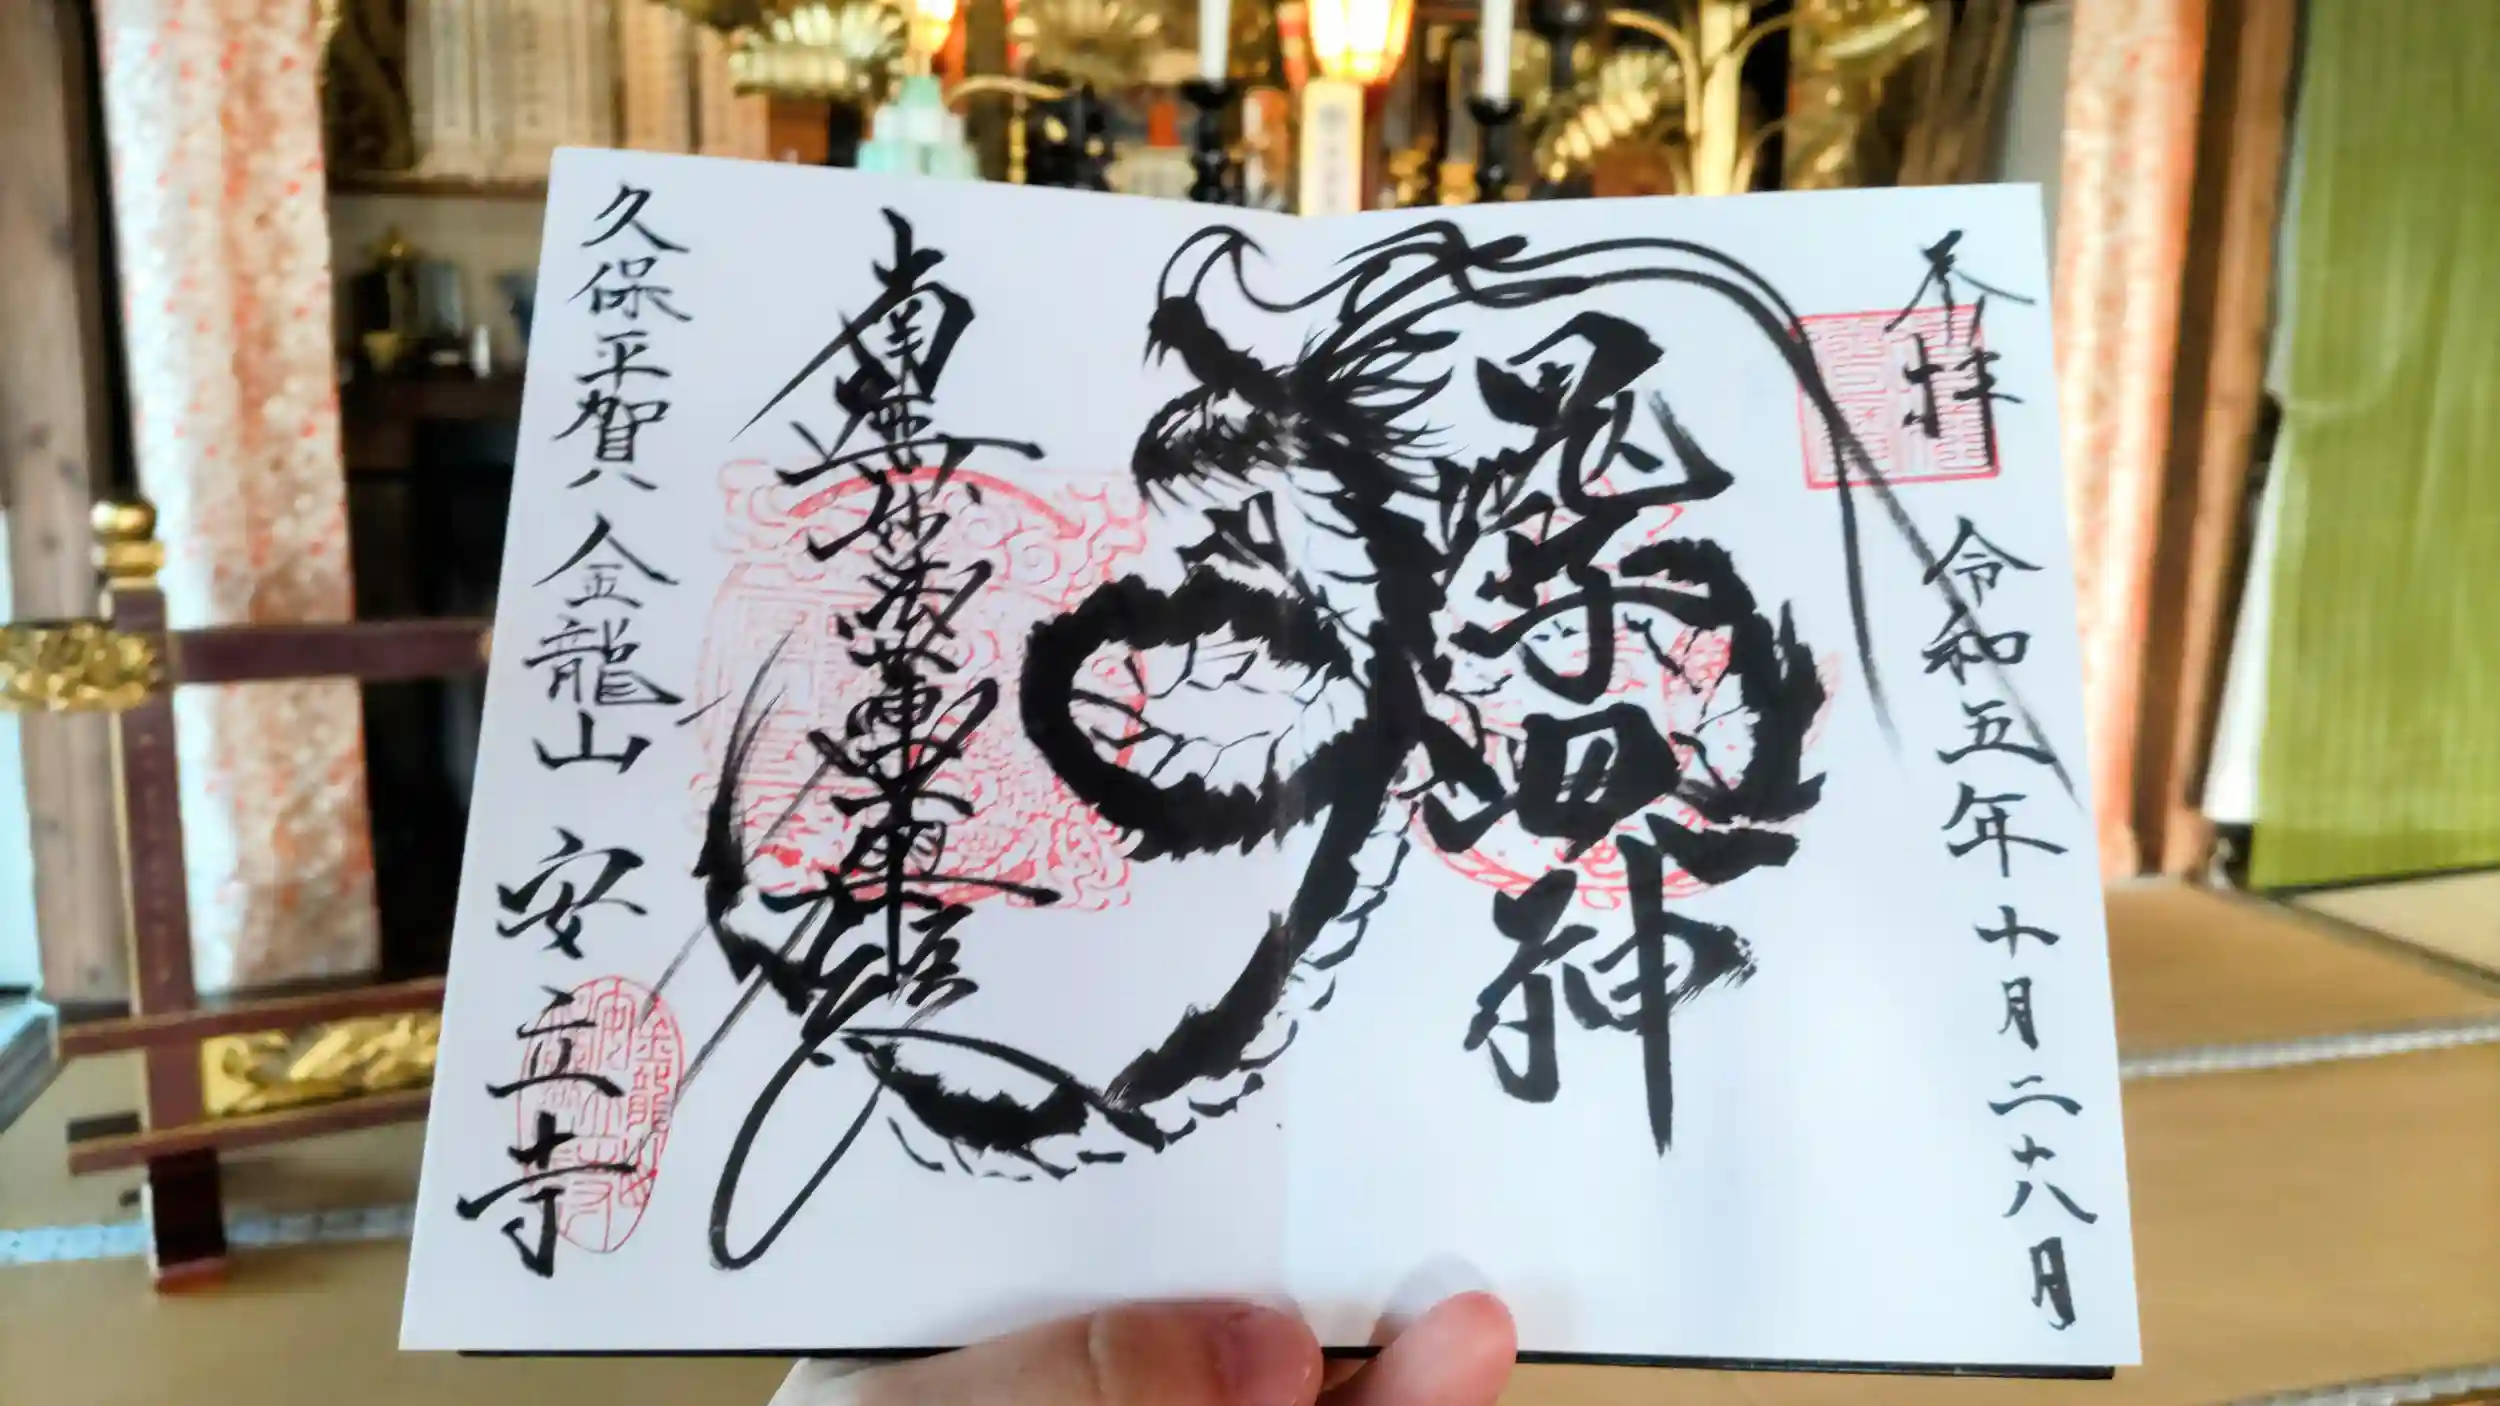 奉拝
令和五年十月二十八月
鬼子母神
南無妙法蓮華経
久保平賀 金龍山 安立寺